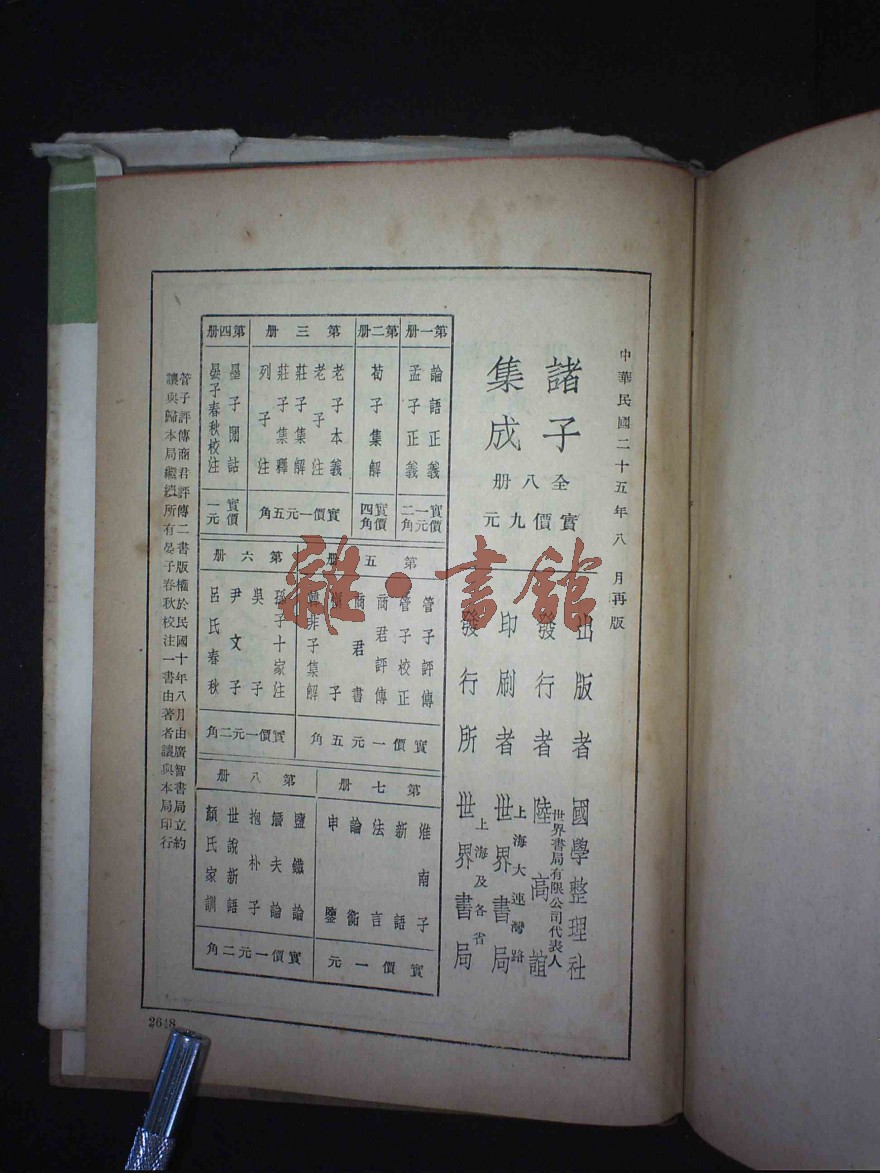 中華民國二十五年八月再版
諸子
集成
全八册
實價九元
出版者 國學整理社
發行者 世界書局有限公司代表人
陸高誼
印刷者 上海大連灣路
世界書局
發行所 上海及各省
世界書局
第一册
論語正義
孟子正義
實價一元二角
第二册
荀子集解
實價四角
第三册
老子本義
老子注
莊子集解
莊子集釋
列子注
實價一元五角
第四册
墨子閒詁
晏子春秋校注
實價一元
第五册
管子評傳
管子校正
商君評傳
商君書
子
韓非子集解
實價一元五角
第六册
孫子十家注
吳子
尹文子
呂氏春秋
實價一元二角
第七册
淮南子
新語
法言
論衡
申鑒
實價一元
第八册
鹽鐵論
潛夫論
抱朴子
世說新語
顏氏家訓
實價一元二角
管子評傳商君評傳二書版權於民國十年八月由廣智書局立約
讓與歸本局繼續所有晏子春秋校注一書由著者讓與本局印行
2648
雜·書館